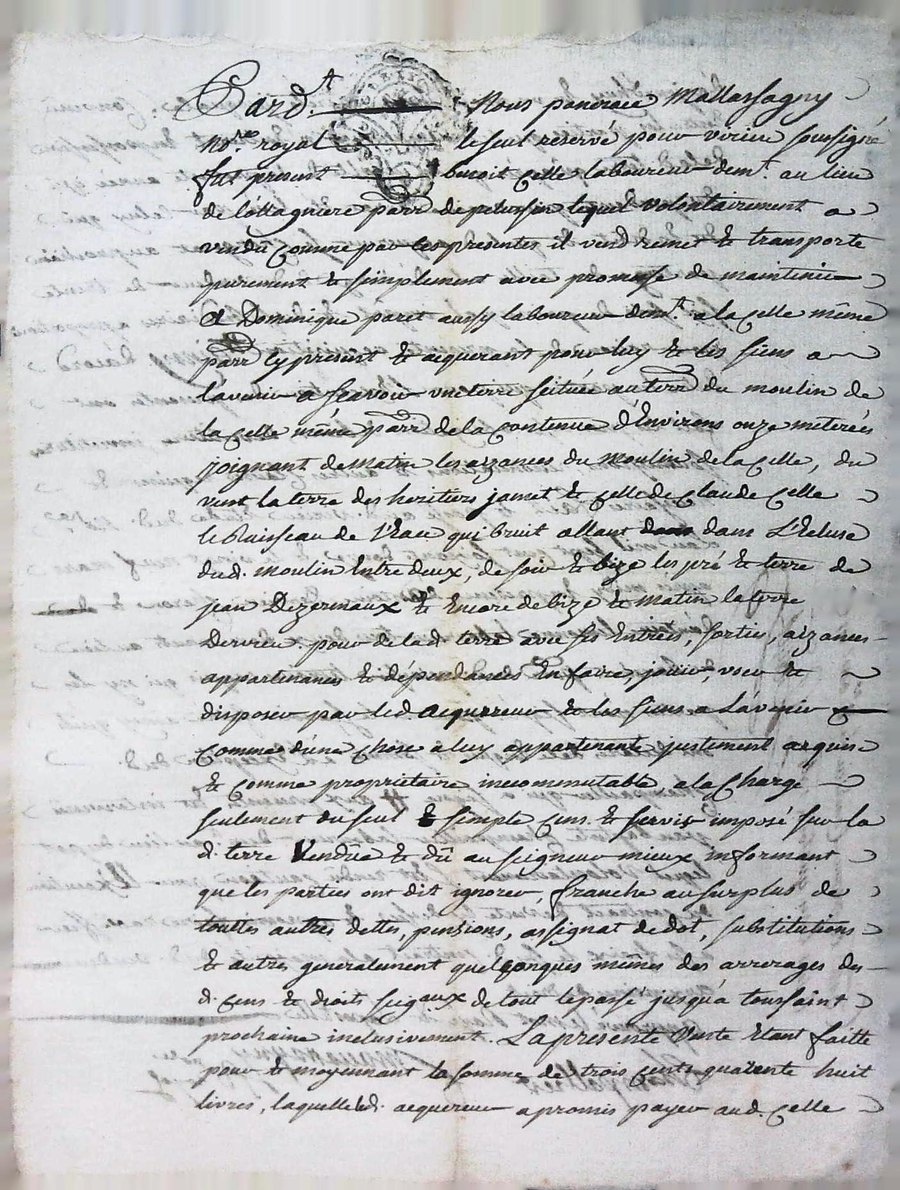 Pard.t Nous pancrace Mallassagny
No.re royal le seul reservé pour virieu soussigné
fut present benoit Celle laboureur dem.t au lieu
de parr de pelussin lequel volontairement a
vendu comme par les presentes il vend remet & transporte
purement & simplement avec promesse de maintenir
a Dominique paret aussy laboureur dem.t a la Celle même
parr Icy present & acquerant pour luy & les siens a
l'avenir a sçavoir une terre scituée au terr du moulin de
la Celle même parr de la contenue d'Environs onze meterées
joignant de matin les aizances du moulin de la Celle, du
vent la terre des heritiers jamet & celle de Claude Celle
le Raisseau de l'Eau qui bruit allant dans L'Ecluse
dud. moulin Entre deux, de soir & bize les pré & terre de
jean Dezermaux & Encore de bize & matin la terre
Dervieu. pour de la d. terre avec ses Entrées, sorties, aizances
appartenances & dépendances En faire, jouir, user &
disposer par led. acquereur & les siens a L'avenir
comme d'une chose a luy appartenante justement acquise
& comme propriétaire incommutable, a la Charge
seulement du seul & simple Cens & servis imposé sur la
d. terre Vendüe & dû au seigneur mieux informant
que les parties ont dit ignorer, franche au surplus de
touttes autres dettes, pensions, assignat de dot, substitutions
& autres generalement quelconques mêmes des arrerages des
d. cens & droits seig.aux de tout le passé jusqu'a toussaint
prochaine inclusivement. La presente Vente Etant faitte
pour & moyennant la somme de trois cents quarente huit
livres, laquelle led. acquereur a promis payer aud. Celle